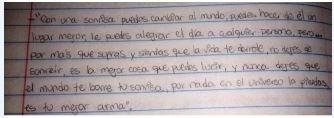 "Con una sonrisa puedes cambiar al mundo, puedes hacer de él un
lugar mejor, le puedes alegrar el día a cualquier persona, pero...
por más que sufras y sientas que la vida te derrote, no dejes de
sonreir, es la mejor cosa que puedes lucir, y nunca dejes que
el mundo te borre tu sonrisa, por nada en el universo la pierdas
es tu mejor arma".